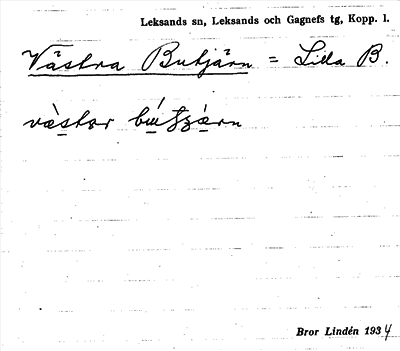 Leksands sn, Leksands och Gagnefs tg, Kopp. l.
Västra Butjärn = Lilla B.
Bror Lindén 1934